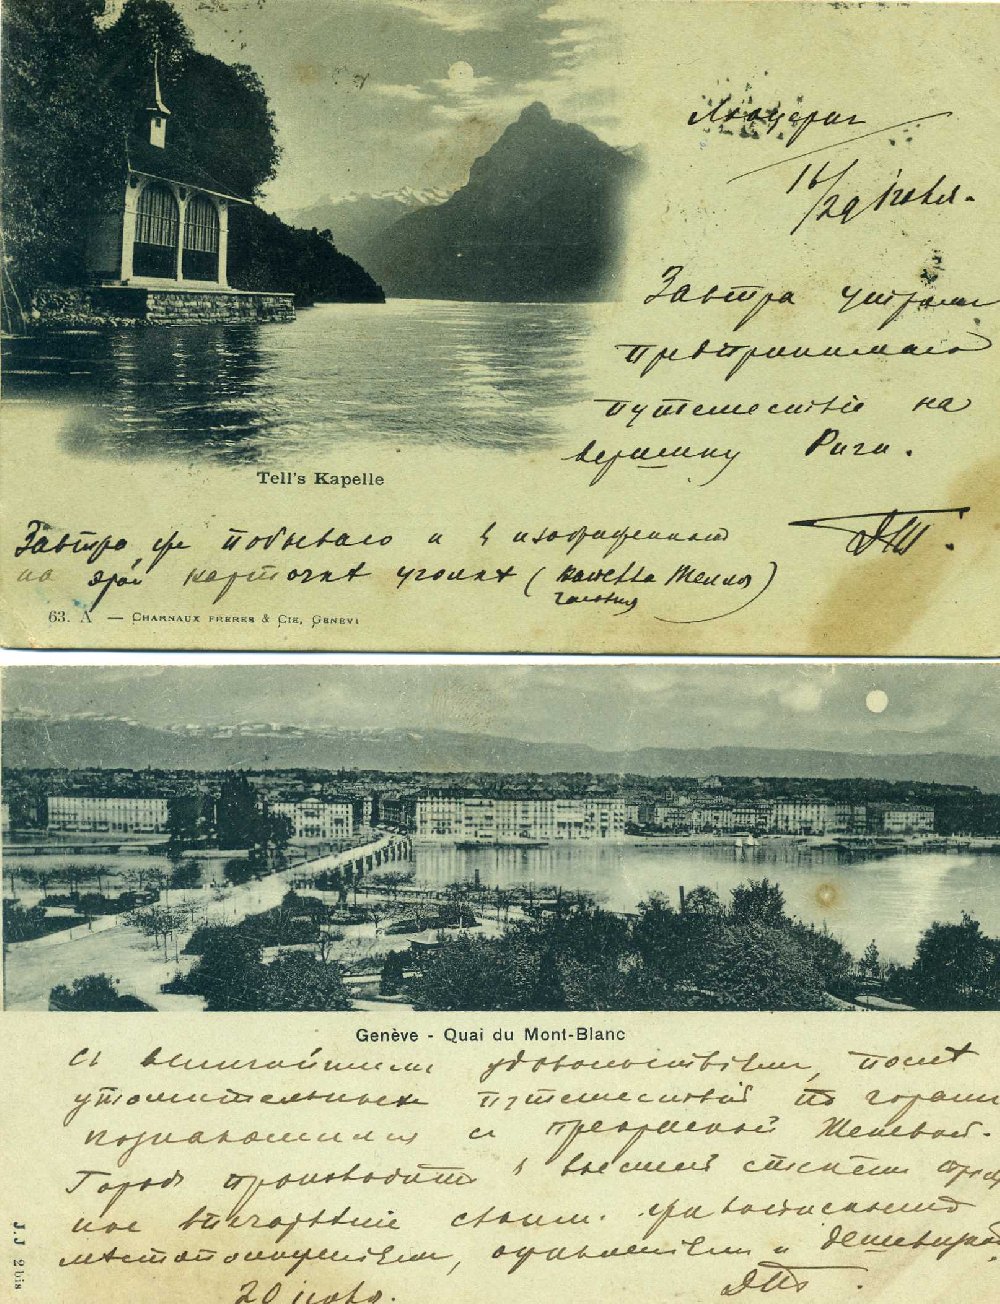 Люцерн
16/29 Іюля.
Завтра утромъ
предпринимаю
путешествіе на
вершину Риги.
Tell's Kapelle
ДШ.
Завтра же побываю и въ изображенномъ
на этой карточкѣ уголкѣ (капелла Телля
часовня)
63. A — CHARNAUX FRERES & CIE, GENEVE
Genève - Quai du Mont-Blanc
Съ величайшимъ удовольствіемъ, послѣ
утомительныхъ путешествій по горамъ
познакомился съ прекрасной Женевой.
Городъ производитъ въ высшей степени
впечатлѣніе своимъ живописнымъ
мѣстоположеніемъ, оживленіемъ и
20 іюля.
J.J 2 bis